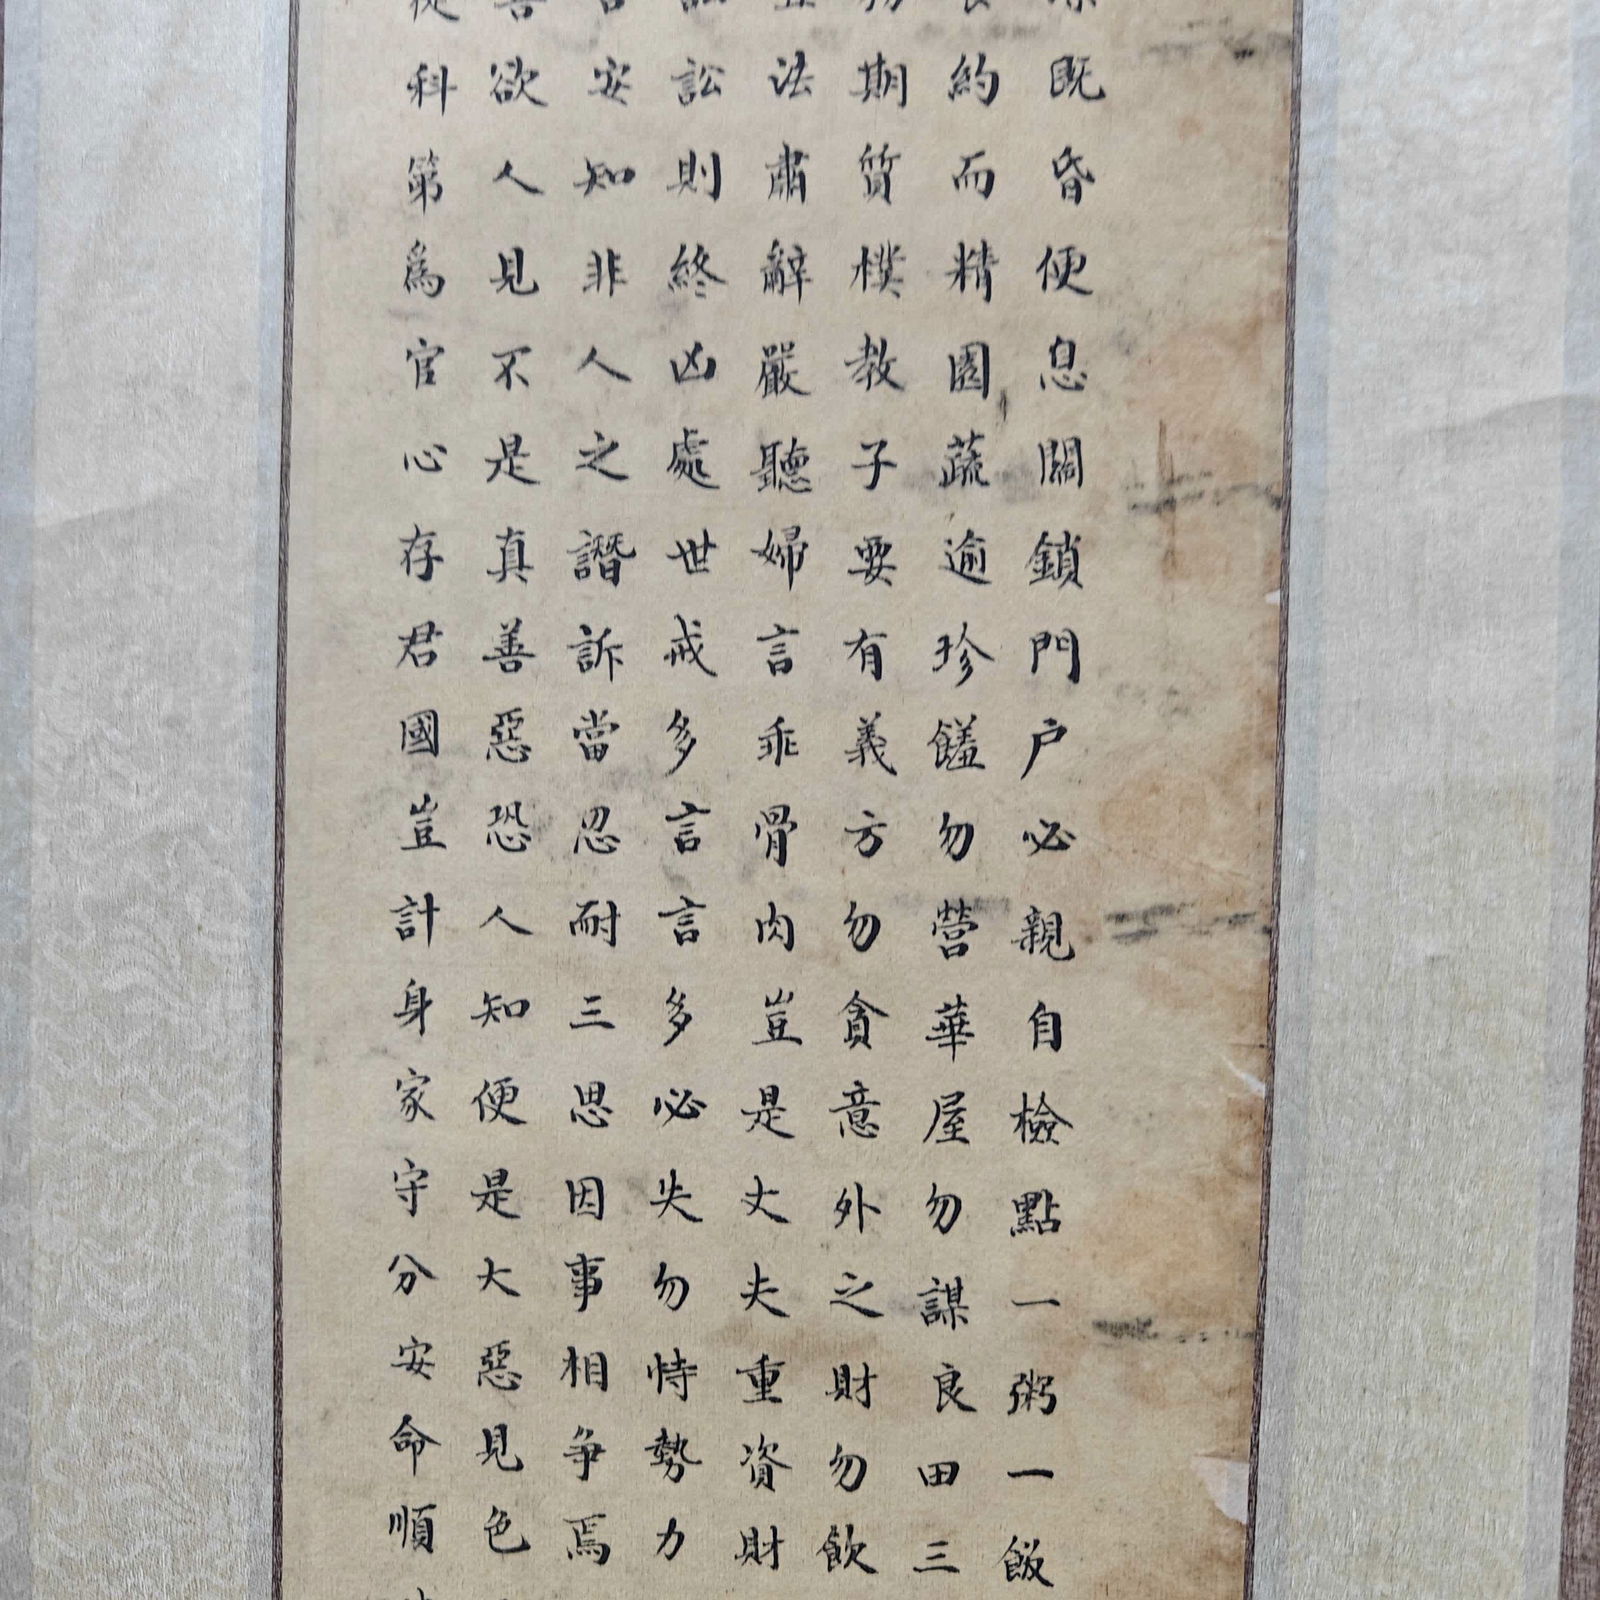 既昏便息關鎖門户必親自檢點一粥一飯
約而精園蔬逾珍饈勿營華屋勿謀良田三
期質樸教子要有義方勿貪意外之財勿飲
法肅辭嚴聽婦言乖骨肉豈是丈夫重資財
訟則終凶處世戒多言言多必失勿恃勢力
安知非人之譖訴當忍耐三思因事相爭焉
欲人見不是真善惡恐人知便是大惡見色
科第爲官心存君國豈計身家守分安命順